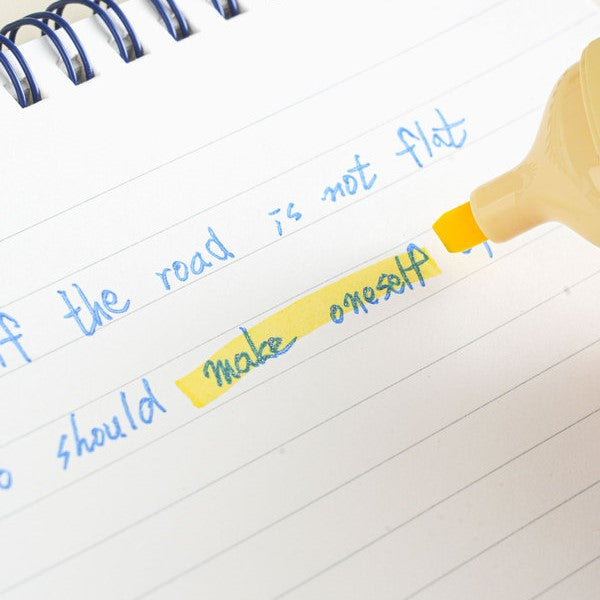 f the road is not flat
o should make oneself